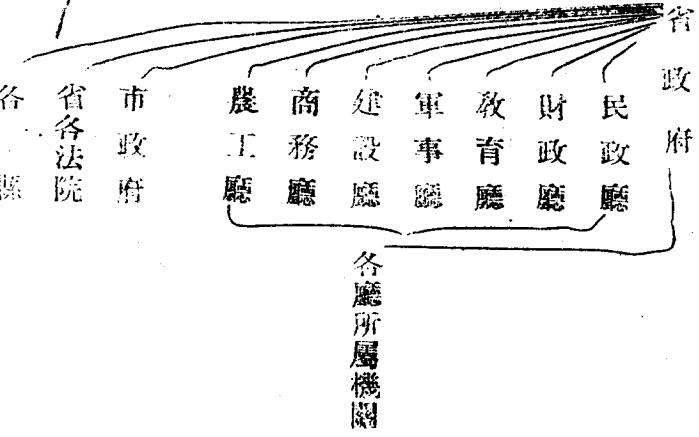 省政府
民政廳
財政廳
教育廳
軍事廳
建設廳
商務廳
農工廳
市政府
省各法院
各縣
各廳所屬機關